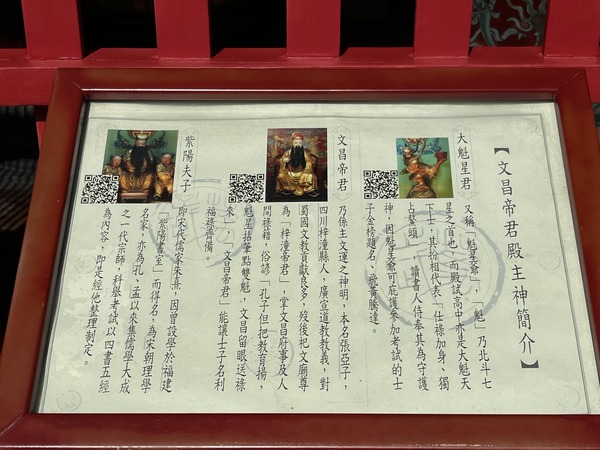 【文昌帝君殿主神簡介】
大魁星君
又稱「魁星爺」，「魁」乃北斗七
星之首也，而殿試高中亦是大魁天
下士，其扮相代表「仕祿加身、獨
占鰲頭」，讀書人侍奉其為守護
神，因魁星爺可庇護參加考試的士
子金榜題名，飛黃騰達。
文昌帝君
乃係主文運之神明，本名張亞子，
四川梓潼縣人，廣宣道教教義，對
蜀國文教貢獻良多，歿後祀文廟尊
為「梓潼帝君」，掌文昌府事及人
間祿籍，俗諺「孔子但把教育揚，
魁星拮筆點雙魁，文昌留眼送祿
來」，「文昌帝君」能讓士子名利
福祿齊備。
紫陽夫子
即宋代儒家朱熹，因曾設學於福建
「紫陽書室」而得名，為宋朝理學
名家，亦為孔、孟以來集儒學大成
之一代宗師，科舉考試以四書五經
為內容，即是經他整理制定。